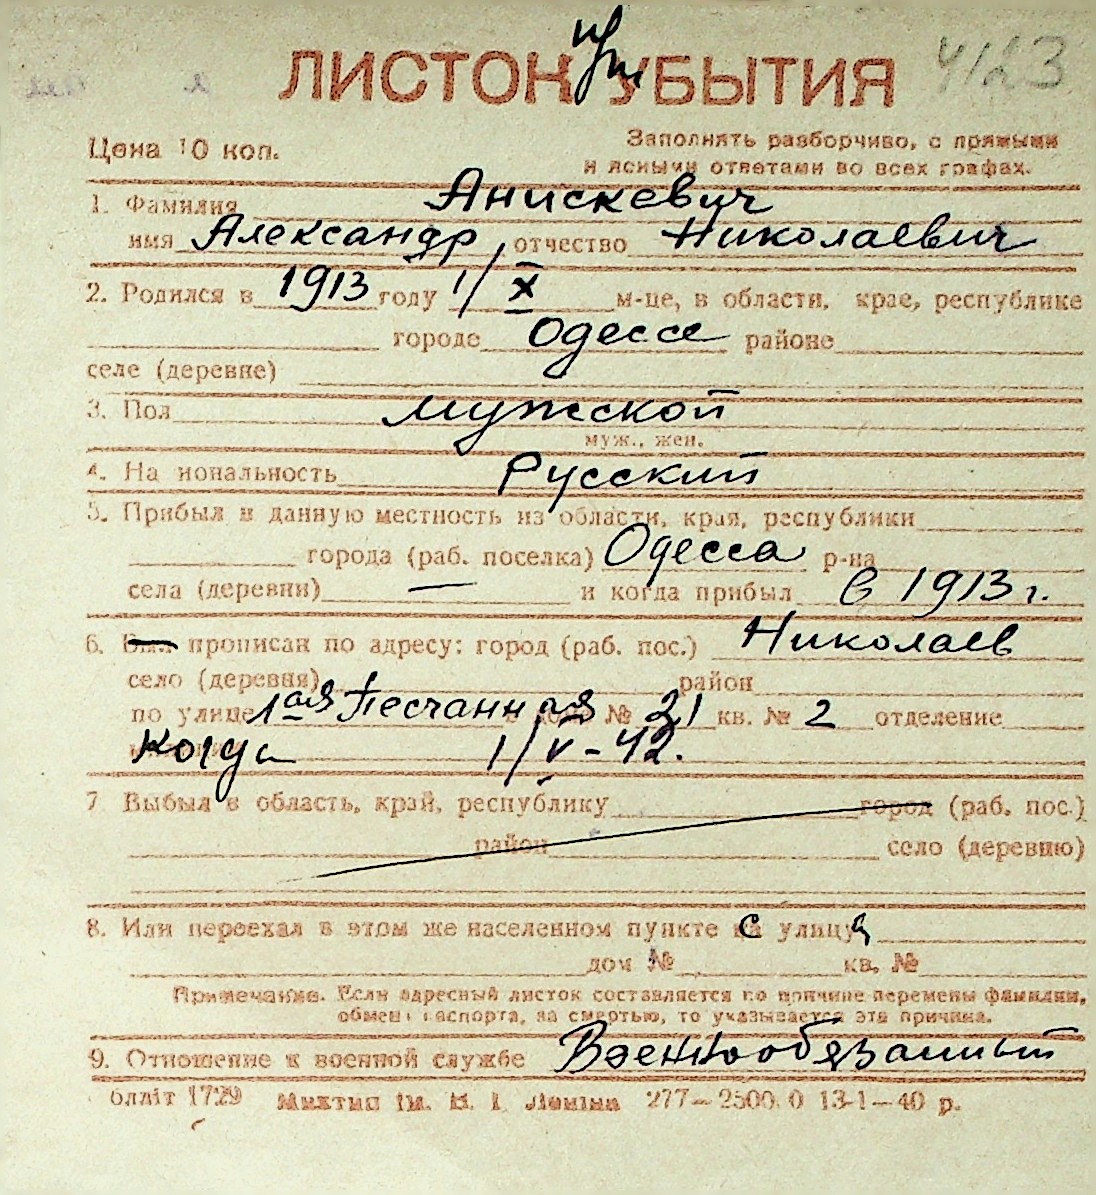 ЛИСТОК при УБЫТИЯ 4123
Цена 10 коп. Заполнять разборчиво, с прямыми
и ясными ответами во всех графах.
1. Фамилия Анискевич
имя Александр, отчество Николаевич
2. Родился в 1913 году 1/X м-це, в области, крае, республике
городе Одессе районе
селе (деревне)
3. Пол мужской
муж., жен.
4. На иональность Русский
5. Прибыл в данную местность из области, края, республики
города (раб. поселка) Одесса р-на
села (деревни) — и когда прибыл в 1913 г.
6. Был прописан по адресу: город (раб. пос.) Николаев
село (деревня) район
по улице 1ая Песчанная № 31 кв. № 2 отделение
Когда 1/V-42.
7 Выбыл в область, край, республику город (раб. пос.)
район село (деревню)
8. Или переехал в этом же населенном пункте с улицы
дом № кв. №
Примечание. Если адресный листок составляется по причине перемены фамилии,
обмен паспорта, за смертью, то указывается эта причина.
9. Отношение к военной службе Военнообязанный
блліт 1729 Миктип ім. В. І. Леніна 277—2500.0 13-1—40 р.